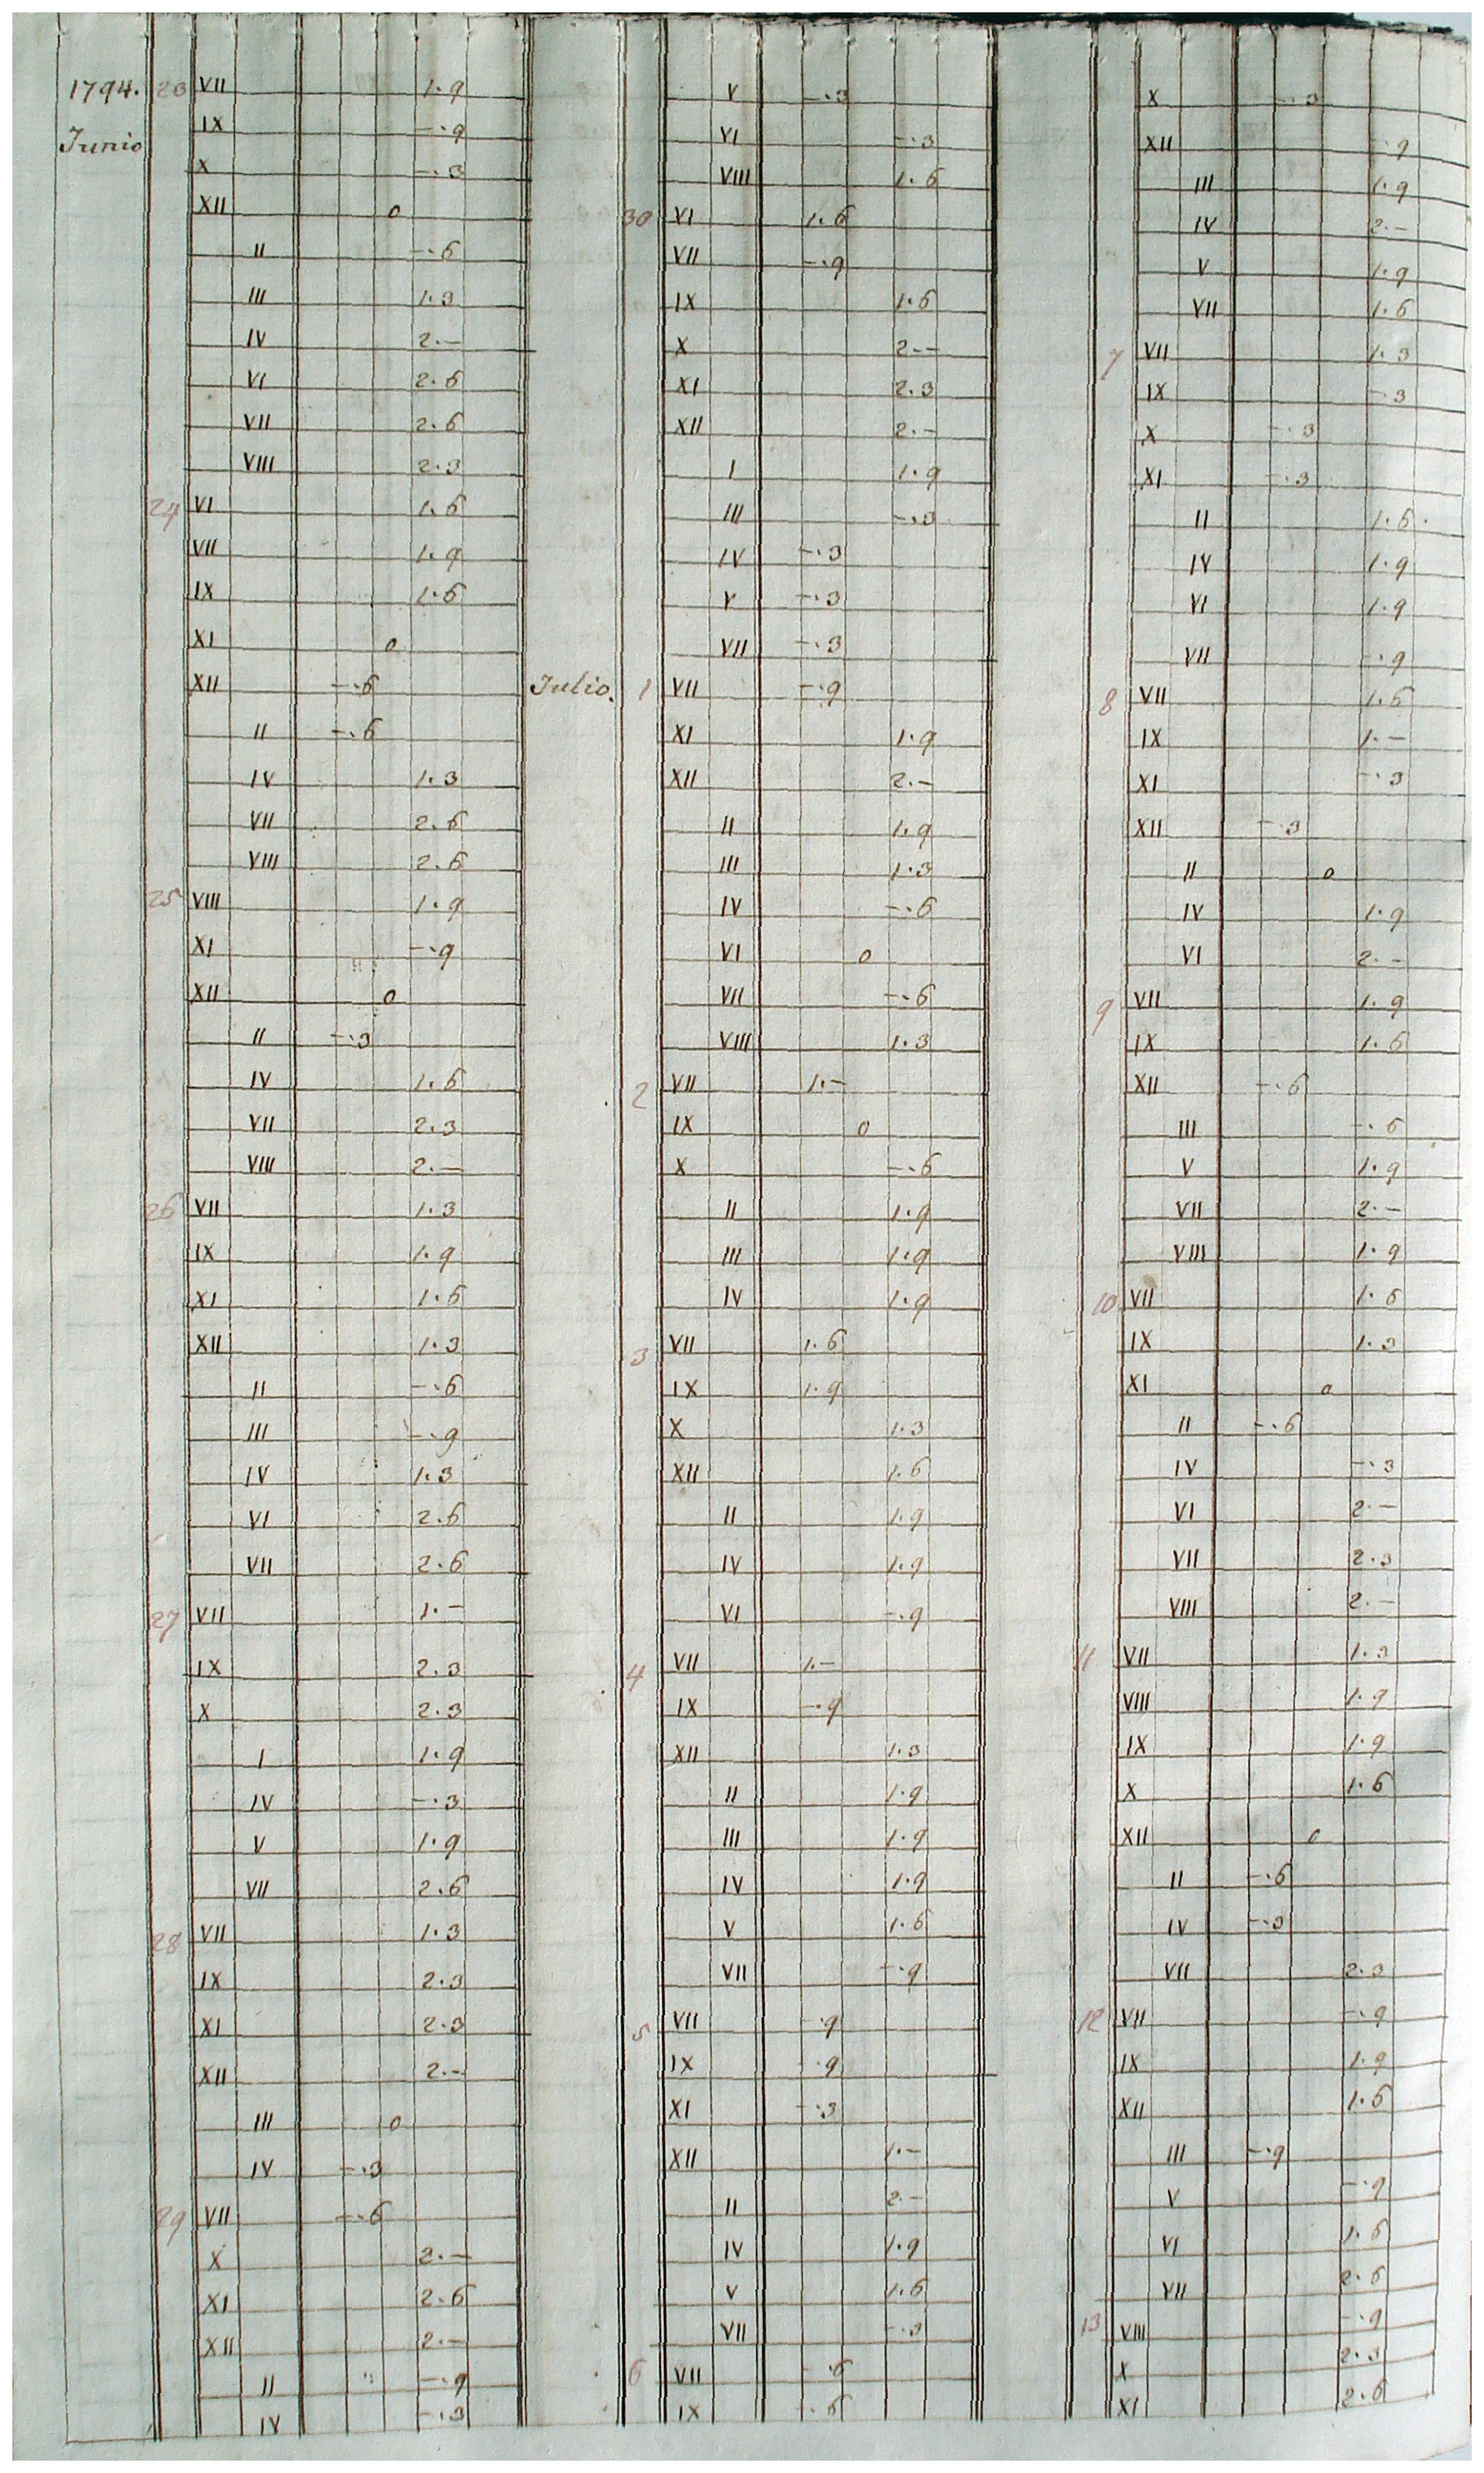 1794. 23 VII 1.9
Junio IX -.9
X -.3
XII 0
II -.6
III 1.3
IV 2.-
VI 2.6
VII 2.6
VIII 2.3
24 VI 1.6
VII 1.9
IX 1.6
XI 0
XII -.6
II -.6
IV 1.3
VII 2.6
VIII 2.6
25 VIII 1.9
XI -.9
XII 0
II -.3
IV 1.6
VII 2.3
VIII 2.-
26 VII 1.3
IX 1.9
XI 1.6
XII 1.3
II -.6
III -.9
IV 1.3
VI 2.6
VII 2.6
27 VII 1.-
IX 2.3
X 2.3
I 1.9
IV -.3
V 1.9
VII 2.6
28 VII 1.3
IX 2.3
XI 2.3
XII 2.-
III 0
IV -.3
29 VII -.6
X 2.-
XI 2.6
XII 2.-
II -.9
IV -.3
V -.3
VI -.3
VIII 1.6
30 VI 1.6
VII -.9
IX 1.6
X 2.-
XI 2.3
XII 2.-
I 1.9
III -.3
IV -.3
V -.3
VII -.3
Julio. 1 VII -.9
XI 1.9
XII 2.-
II 1.9
III 1.3
IV -.6
VI 0
VII -.6
VIII 1.3
2 VII 1.-
IX 0
X -.6
II 1.9
III 1.9
IV 1.9
3 VII 1.6
IX 1.9
X 1.3
XII 1.6
II 1.9
IV 1.9
VI -.9
4 VII 1.-
IX -.9
XII 1.3
II 1.9
III 1.9
IV 1.9
V 1.6
VII -.9
5 VII -.9
IX -.9
XI -.3
XII 1.-
II 2.-
IV 1.9
V 1.6
VII -.3
6 VII -.6
IX -.6
X -.3
XII -.9
III 1.9
IV 2.-
V 1.9
VII 1.6
7 VII 1.3
IX -.3
X -.3
XI -.3
II 1.6.
IV 1.9
VI 1.9
VII -.9
8 VII 1.6
IX 1.-
XI -.3
XII -.3
II 0
IV 1.9
VI 2.-
9 VII 1.9
IX 1.6
XII -.6
III -.6
V 1.9
VII 2.-
VIII 1.9
10 VII 1.6
IX 1.3
XI 0
II -.6
IV -.3
VI 2.-
VII 2.3
VIII 2.-
11 VII 1.3
VIII 1.9
IX 1.9
X 1.6
XII 0
II -.6
IV -.3
VII 2.3
12 VII -.9
IX 1.9
XII 1.6
III -.9
V -.9
VI 1.6
VII 2.6
13 VIII -.9
X 2.3
XI 2.6